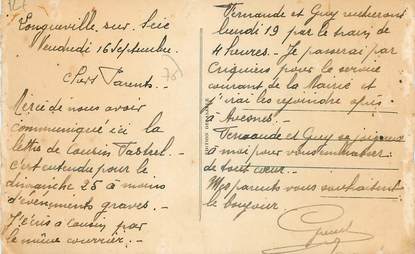 Longueville-sur-Scie
Vendredi 16 Septembre.
Chers Parents. -
Merci de nous avoir
communiqué ici la
lettre de cousin Tastrel. -
C'est entendu pour le
dimanche 25 à moins
d'évènements graves. -
J'écris à cousin par
le même courrier. -
Fernande et Guy rentreront
lundi 19 par le train de
4 heures. - Je passerai par
Criquiers pour le service
courant de la Mairie et
j'irai les rejoindre après
à Avesnes. -
Fernande et Guy se joignent
à moi pour vous embrasser
de tout coeur. -
Mes parents vous souhaitent
le bonjour